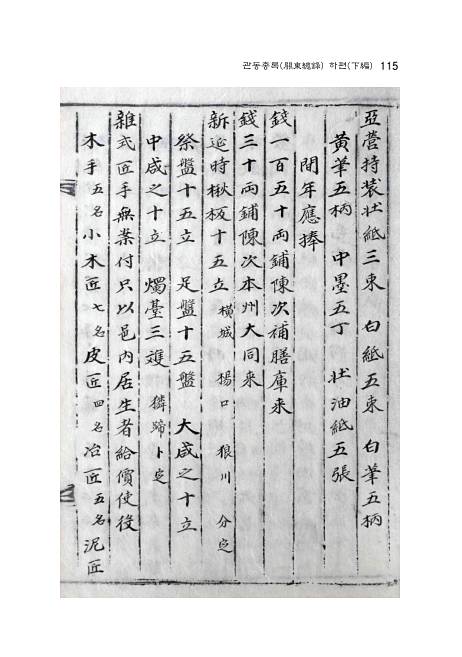 관동총록(關東總錄) 하편(下編) 115
亞營持裝壯紙三束 白紙五束 白筆五柄
黃筆五柄 中墨五丁 壯油紙五張
間年應捧
錢一百五十兩鋪陳次補膳庫来
錢三十兩鋪陳次本州大同来
新迎時楸板十五立 橫城 楊口 狼川 分定
祭盤十五立 足盤十五盤 大咸之十立
中咸之十立 燭臺三雙 獜蹄卜定
雜式匠手無業付只以邑內居生者給價使役
木手五名小木匠七名皮匠四名冶匠五名泥匠